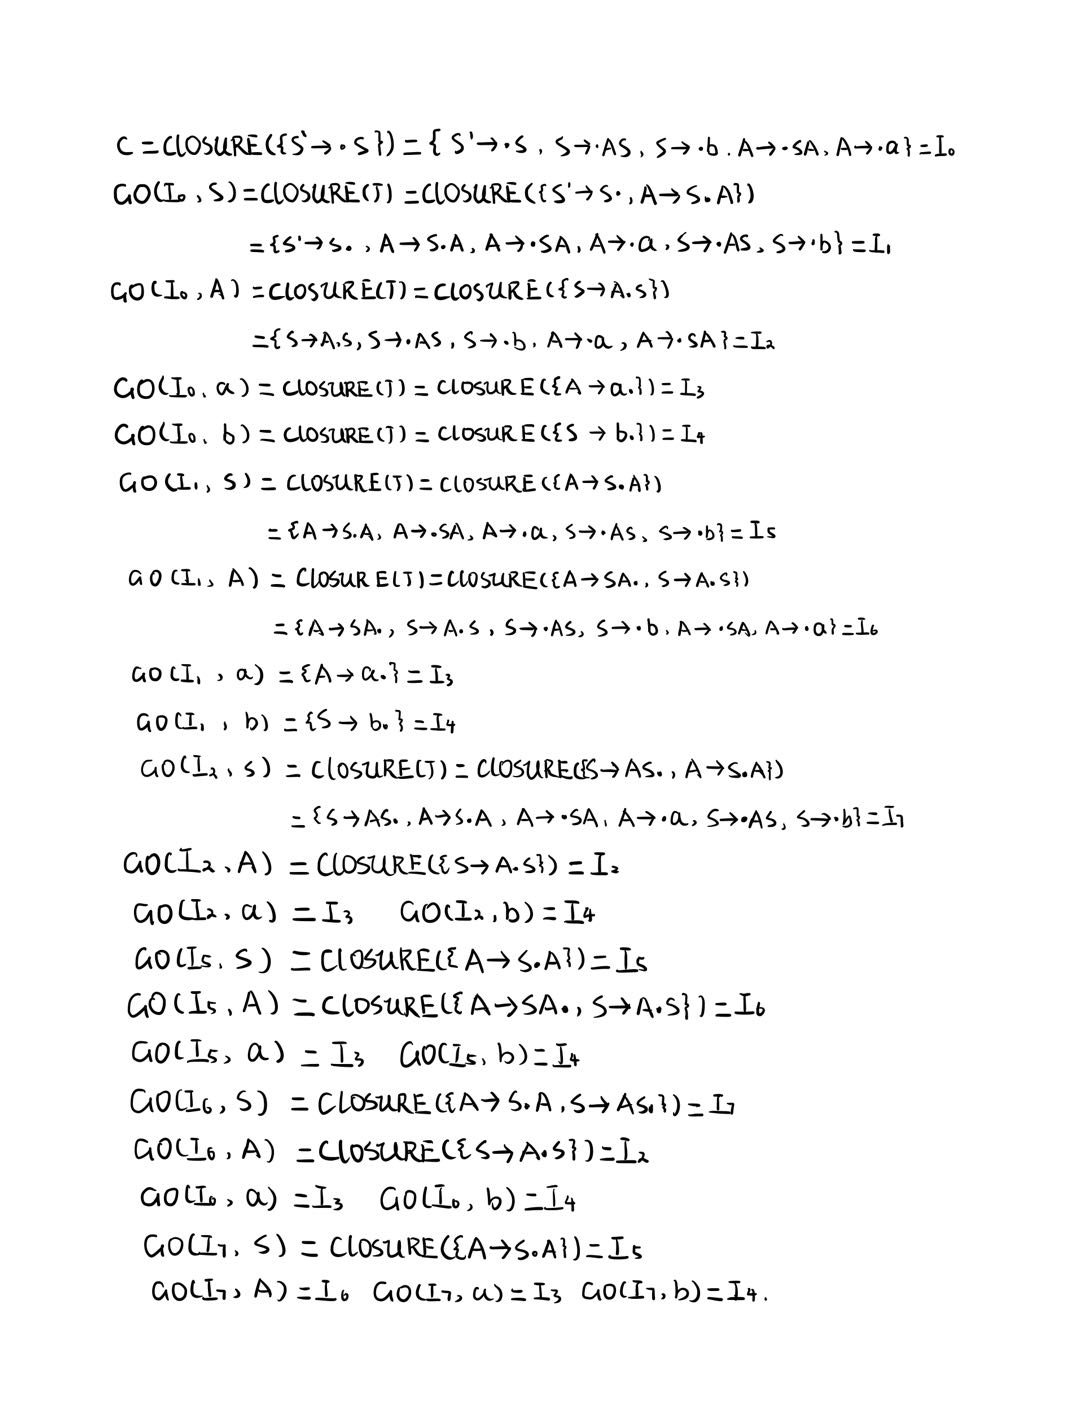 C = CLOSURE({S'→·S}) = { S'→·S, S→·AS, S→·b, A→·SA, A→·a} = I₀
GO(I₀, S) = CLOSURE(J) = CLOSURE({S'→S·, A→S.A})
= {S'→S. , A→S.A, A→·SA, A→·a, S→·AS, S→·b} = I₁
GO(I₀, A) = CLOSURE(J) = CLOSURE({S→A.S})
= {S→A.S, S→·AS, S→·b, A→·a, A→·SA} = I₂
GO(I₀, a) = CLOSURE(J) = CLOSURE({A→a.}) = I₃
GO(I₀, b) = CLOSURE(J) = CLOSURE({S → b.}) = I₄
GO(I₁, S) = CLOSURE(J) = CLOSURE({A→S.A})
= {A→S.A, A→·SA, A→·a, S→·AS, S→·b} = I₅
GO(I₁, A) = CLOSURE(J) = CLOSURE({A→SA., S→A.S})
= {A→SA., S→A.S, S→·AS, S→·b, A→·SA, A→·a} = I₆
GO(I₁, a) = {A→a.} = I₃
GO(I₁, b) = {S→b.} = I₄
GO(I₂, S) = CLOSURE(J) = CLOSURE({S→AS., A→S.A})
= {S→AS., A→S.A, A→·SA, A→·a, S→·AS, S→·b} = I₇
GO(I₂, A) = CLOSURE({S→A.S}) = I₂
GO(I₂, a) = I₃ GO(I₂, b) = I₄
GO(I₅, S) = CLOSURE({A→S.A}) = I₅
GO(I₅, A) = CLOSURE({A→SA., S→A.S}) = I₆
GO(I₅, a) = I₃ GO(I₅, b) = I₄
GO(I₆, S) = CLOSURE({A→S.A, S→AS.}) = I₇
GO(I₆, A) = CLOSURE({S→A.S}) = I₂
GO(I₆, a) = I₃ GO(I₆, b) = I₄
GO(I₇, S) = CLOSURE({A→S.A}) = I₅
GO(I₇, A) = I₆ GO(I₇, a) = I₃ GO(I₇, b) = I₄.